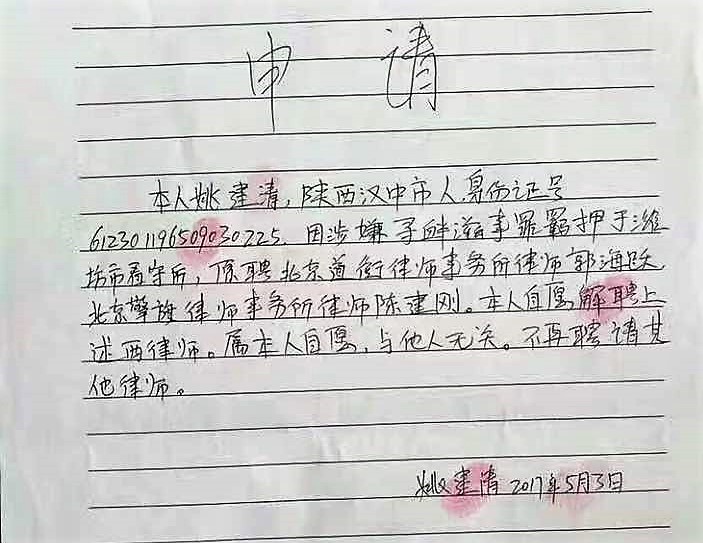 申请
本人姚建清，陕西汉中市人身份证号
612301196509030225．因涉嫌寻衅滋事罪羁押于潍
坊市看守所，原聘北京道衡律师事务所律师郭海跃，
北京擎旗律师事务所律师陈建刚。本人自愿解聘上
述两律师。属本人自愿，与他人无关。不再聘请其
他律师。
姚建清 2017年5月3日